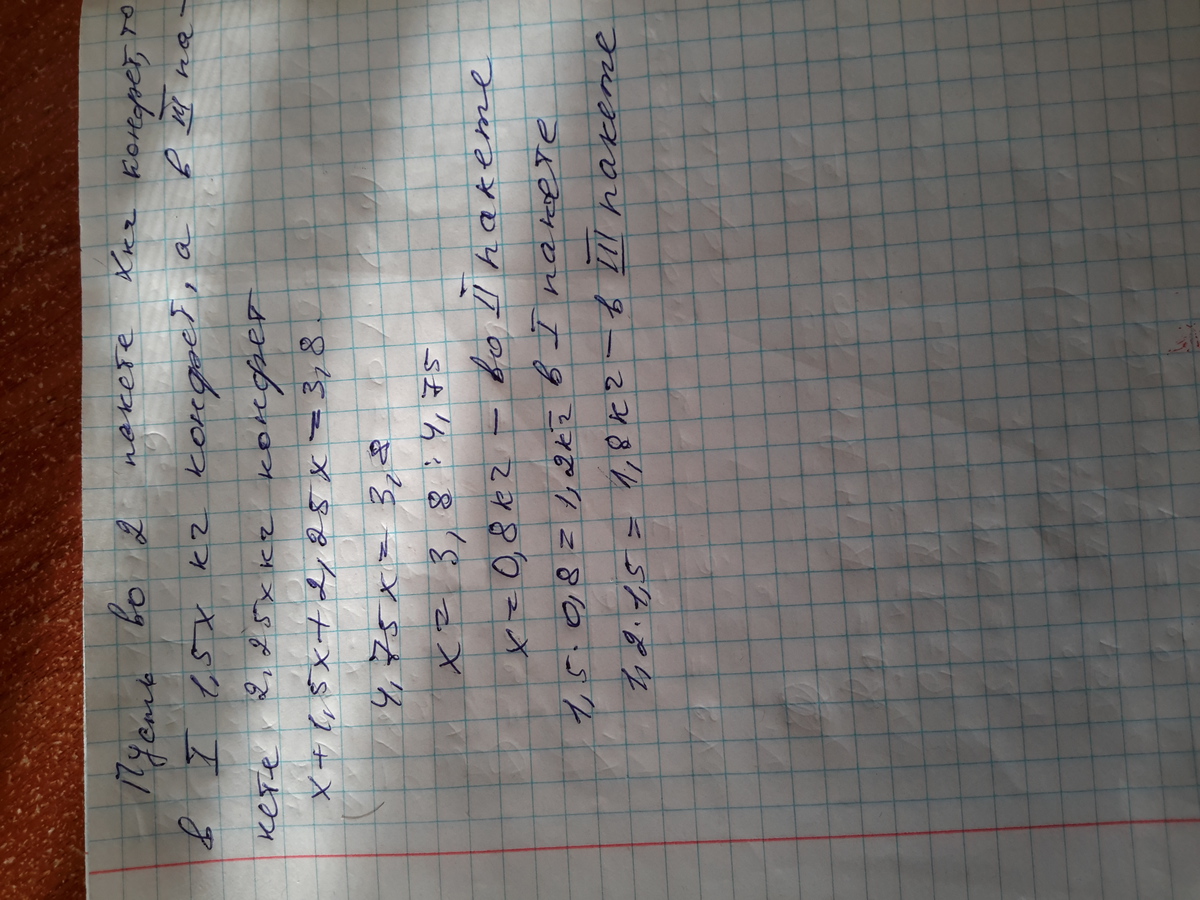 Пусть во 2 пакете х кг конфет, то
в I 1,5х кг конфет, а в III па-
кете 2,25х кг конфет
х+1,5х+2,25х=3,8.
4,75х=3,8
х=3,8:4,75
х=0,8кг – во II пакете
1,5·0,8=1,2кг в I пакете
1,2·1,5=1,8кг – в III пакете